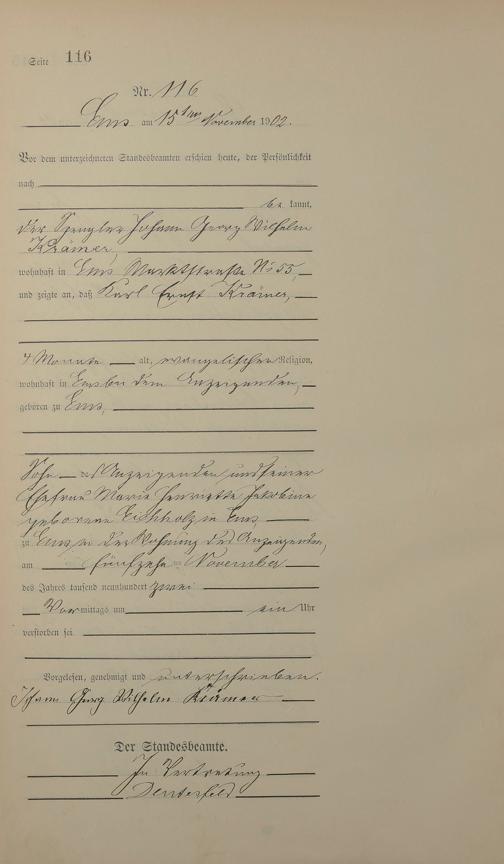 Seite 116
Nr. 116
Ems am 15ten November 1902.
Vor dem unterzeichneten Standesbeamten erschien heute, der Persönlichkeit
nach
be kannt,
der Spengler Johann Georg Wilhelm
Krämer,
wohnhaft in Ems Marktstraße No 55,
und zeigte an, daß Karl Ernst Krämer,
4 Monate alt, evangelischer Religion,
wohnhaft in Ems bei dem Anzeigenden,
geboren zu Ems,
Sohn des Anzeigenden und seiner
Ehefrau Marie Henriette Jakobine
geborene Eichholz in Ems
zu Ems in der Wohnung des Anzeigenden,
am fünfzehn November
des Jahres tausend neunhundert zwei
Vor mittags um ein Uhr
verstorben sei
Vorgelesen, genehmigt und unterschrieben.
Johann Georg Wilhelm Krämer
Der Standesbeamte.
In Vertretung